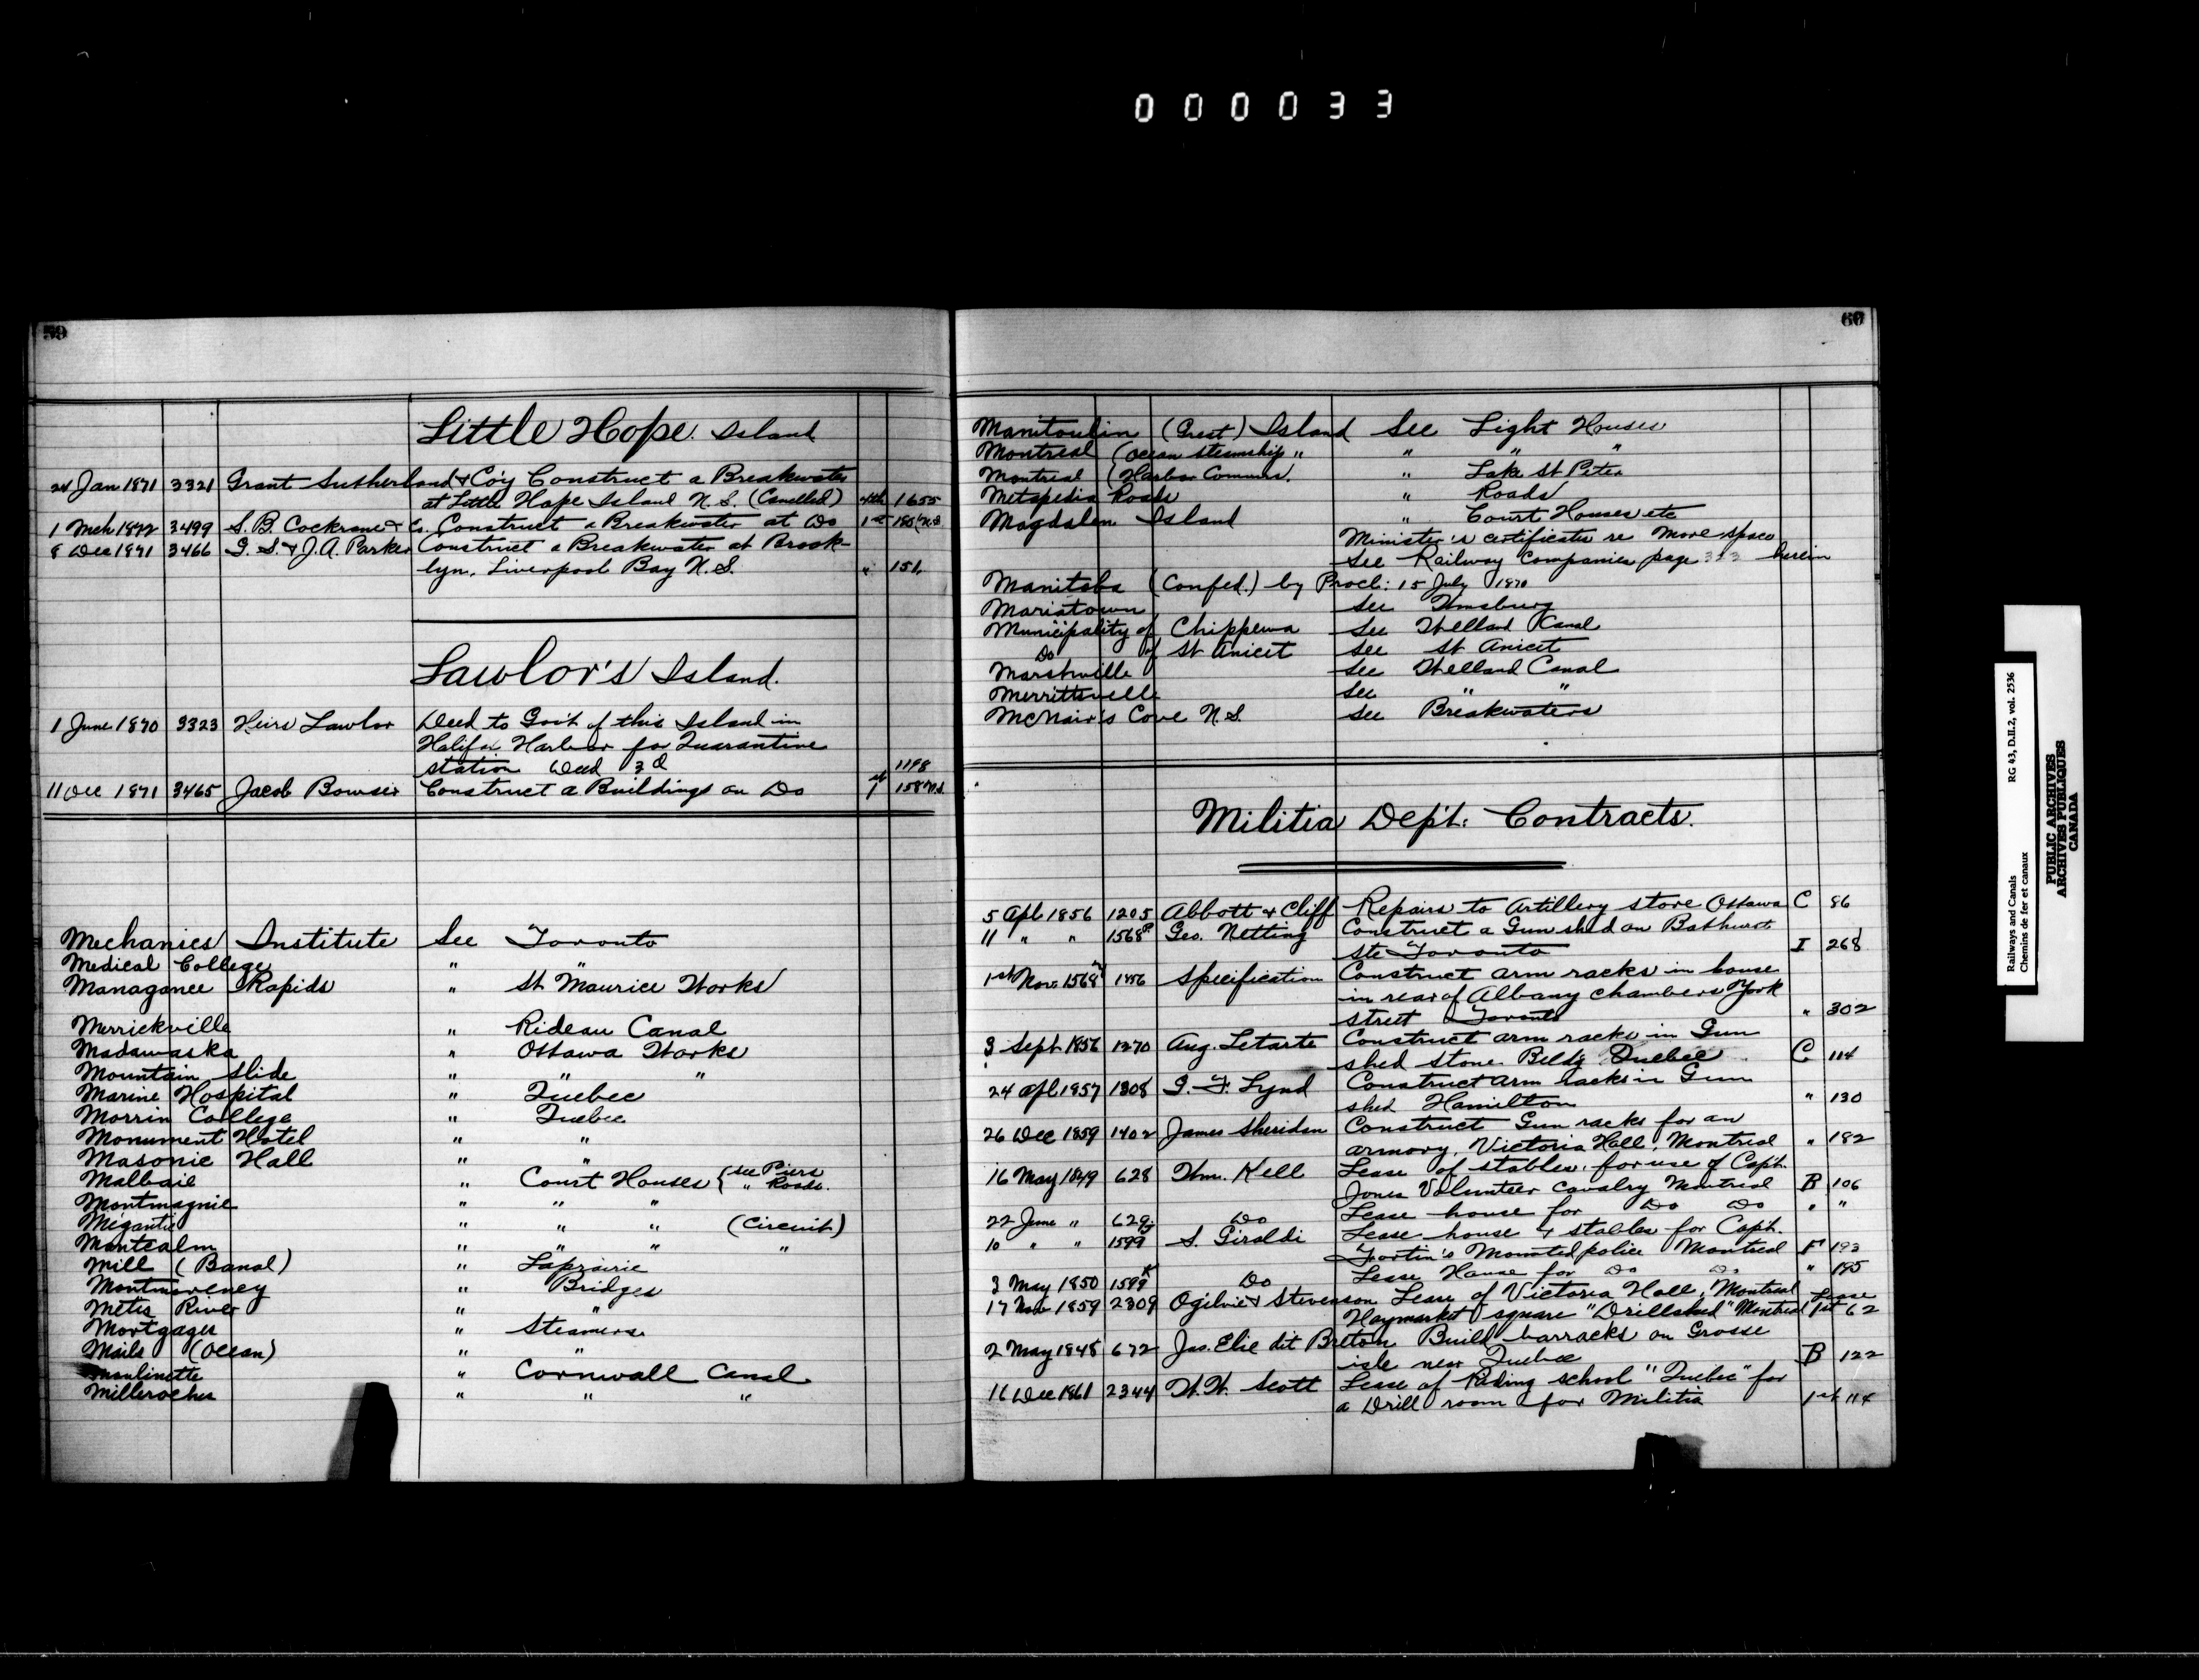 000033
59
Little Hope Island
24 Jan 1871 3321 Grant Sutherland & Coy Construct a Breakwater
at Little Hope Island N.S. (Cancelled) 4th 1655
1 Mch 1872 3499 S. B. Cockrane & Co. Construct a Breakwater at Do 1st 180 N.S.
8 Dec 1871 3466 G. S. & J. A. Parker Construct a Breakwater at Brook-
lyn, Liverpool Bay N.S. " 151
Lawlor's Island.
1 June 1870 3323 Heirs Lawlor Deed to Gov't of this Island in
Halifax Harbor for Quarantine
station Deed 3 Q 1198
11 Dec 1871 3465 Jacob Bowser Construct a Buildings on Do 1st 158 N.S.
Mechanics Institute See Toronto
Medical College " "
Managance Rapids " St Maurice Works
Merrickville " Rideau Canal
Madawaska " Ottawa Works
Mountain Slide " " "
Marine Hospital " Quebec
Morrin College " Quebec
Monument Hotel " "
Masonic Hall " "
Malbaie " Court Houses { see Piers
" Roads.
Montmagnie " " "
Megantic " " " (Circuit)
Montcalm " " " "
Mill (Banal) " Laprairie
Montmorency " Bridges
Metis River " "
Mortgages " Steamers
Mails (Ocean) " "
Moulinette " Cornwall Canal
Milleroches " " "
60
Manitoulin (Great) Island See Light Houses
Montreal (Ocean steamship " " " "
Montreal (Harbor Commrs. " Lake St Peter
Metapedia Roads " Roads
Magdalen Island " Court Houses etc
Minister's certificates re More space
See Railway Companies page herein
Manitoba (Confed.) by Procl: 15 July 1870
Mariatown See Wmsburg
Municipality of Chippewa See Welland Canal
Do of St Anicet See St Anicet
Marshville See Welland Canal
Merrittsville See " "
McNair's Cove N.S. See Breakwaters
Militia Dep't. Contracts.
5 Apl 1856 1205 Abbott & Cliff Repairs to Artillery store Ottawa C 86
11 " " 1568 Geo. Netting Construct a Gun shed on Bathurst
Ste Toronto I 268
1st Nov. 1568 1856 Specification Construct arm racks in house
in rear of Albany Chambers York
Street Toronto " 302
3 Sept 1856 1270 Aug. Letarte Construct arm racks in Gun
shed stone Bldg Quebec C 114
24 Apl 1857 1308 G. F. Lynd Construct arm racks in Gun
shed Hamilton " 130
26 Dec 1859 1402 James Sheridan Construct Gun racks for an
armory, Victoria Hall, Montreal " 182
16 May 1849 628 Thm. Kell Lease of stables for use of Capt.
Jones Volunteer Cavalry Montreal B 106
22 June " 629 Do Lease house for Do Do " "
10 " " 1599 S. Giraldi Lease house & stables for Capt.
Fortin's Mounted police Montreal F 193
3 May 1850 1599 Do Lease House for Do Do " 195
17 Nov 1859 2309 Ogilvie & Stevenson Lease of Victoria Hall, Montreal
Haymarket square "Drillshed" Montreal Lease 1st 62
2 May 1848 672 Jas. Elie dit Breton Build barracks on Grosse
isle near Quebec B 122
16 Dec 1861 2344 W. W. Scott Lease of Riding school "Quebec" for
a Drill room for Militia 1st 114
Railways and Canals RG 43, D.II.2, vol. 2536
Chemins de fer et canaux
PUBLIC ARCHIVES
ARCHIVES PUBLIQUES
CANADA